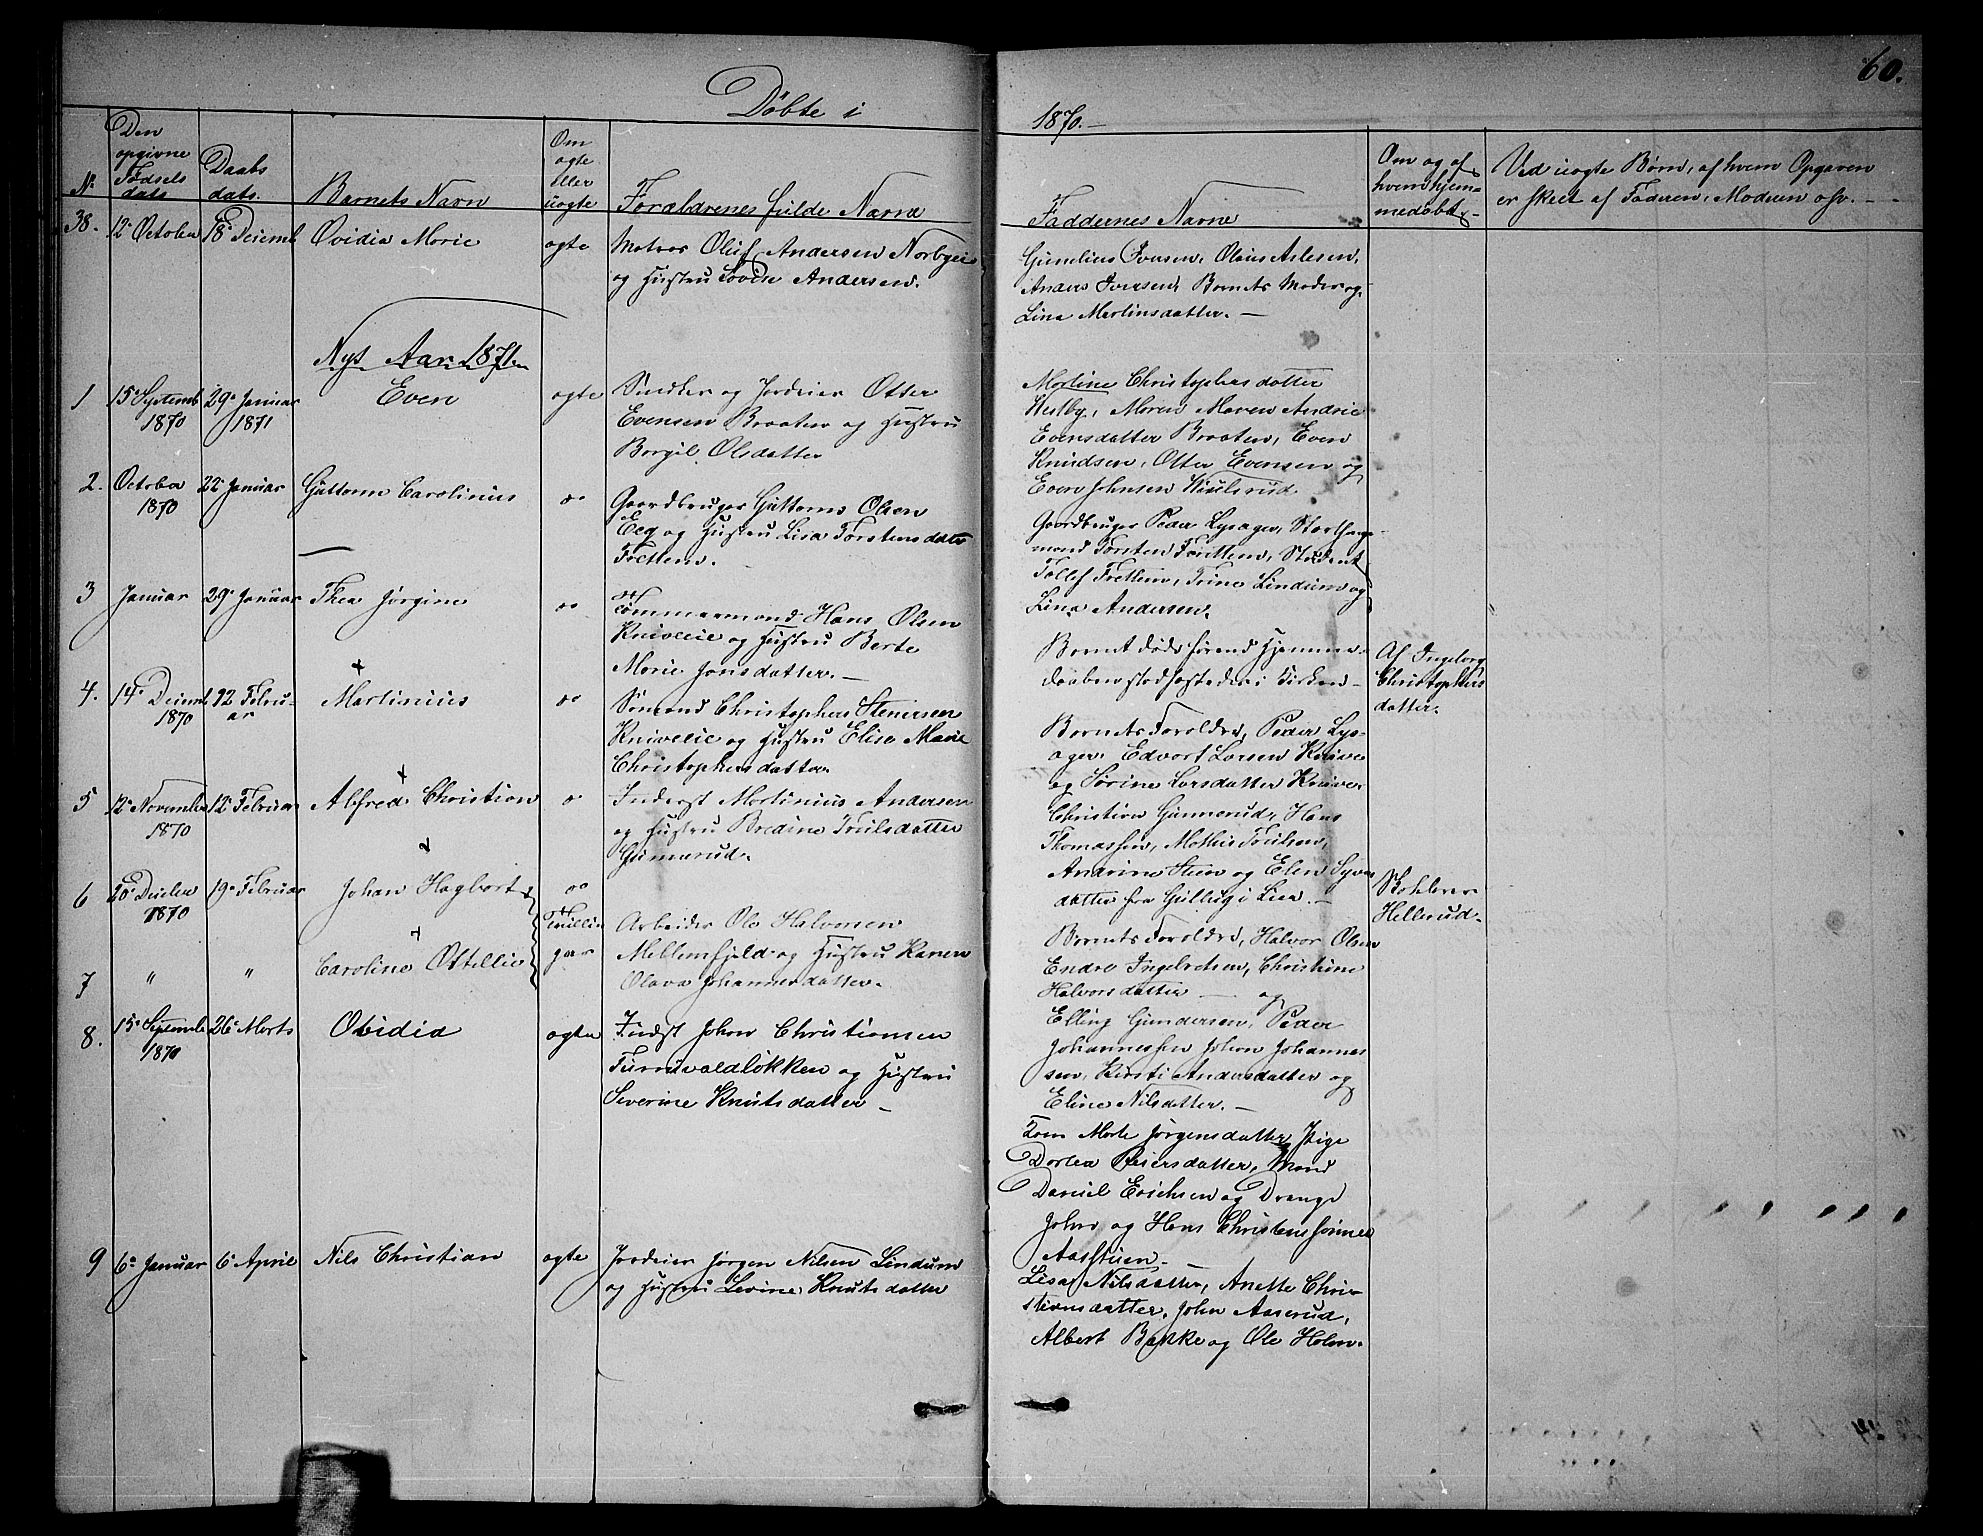 60.
Döbte i
1870.—
No
Den opgivne Fødsels dato
Daabs dato.
Barnets Navn
Om ægte eller uægte
Forældrenes fulde Navne
Faddernes Navne
Om og af hvem hjemmedøbt.
Ved uægte Børn, af hvem Opgaven
er skeet af Faderen, Moderen osv. —
38. 12te October 18de Decemb Ovidia Marie ægte
Matros Oluf Andersen Norbyeie
og Hustru Lovise Andersen.
Gunelius Iversen, Olaus Aslesen,
Anders Iversen, Barnets Moder og
Lina Martinsdatter. —
Nyt Aar 1871
1 15de Septemb 1870 29de Januar 1871 Even ægte
Snedker og Jordeier Otter
Evensen Braaten og Hustru
Borgil Olsdatter
Martine Christophersdatter
Westby, Maren Andrie
Evensdatter Braaten, Even
Knudsen, Otter Evensen og
Even Johnsen
2. October 1870 22de Januar Guttorm Carolinius "
Gaardbruger Guttorm Olsen
Eeg og Hustru Lisa Torstensdatter
Frettem.
Gaardbruger Peder Lysager, Storthings-
mand Torsten Frettem, Student
Tollef Frettem, Trine Lindum og
Lina Andersen.
3 Januar 29de Januar Thea Jørgine "
Tømmermand Hans Olsen
Kniveeie og Hustru Berte
Marie Jonsdatter. —
Barnet døde førend Hjemme-
daaben stadfæstedes i Kirken —
Af Ingeborg
Christophers
datter.
4. 14de Decemb 1870 12 Februar Martinius "
Sømand Christopher Stenersen
Kniveeie og Hustru Elise Marie
Christophersdatter
Barnets Forældre, Peder Lys-
ager, Edvart Larsen Knive
og Sørine Larsdatter Knive.
5 12te November 1870 12te Februar Alfred Christian "
Inderst Martinius Andersen
og Hustru Bredine Truilsdatter
Gunnerud.
Christian Gunnerud, Hans
Thomassen, Mathis Truilsen,
Andrine Steen og Elen Syvers
datter fra Gullaug i Lier. —
Skolelærer
Hellerud.
6 20de Decber 1870 19de Februar Johan Hagbart "
7 " " Caroline Ottellie
Tvillin
gær
Arbeider Ole Halvorsen
Mellemfjeld og Hustru Karen
Olava Johannesdatter.
Barnets Forældre, Halvor Olsen
Endre Ingelretsen, Christiane
Halvorsdatter — og
Elling Gundersen, Peder
Johannessen Johan Johannes
sen, Kirsti Andersdatter og
Eline Nilsdatter. —
8. 15de Septembr 1870 26de Marts Obidia ægte
Inderst Johan Christiansen
og Hustru
Severine Knutsdatter —
Kone Marte Jørgensdatter, Pige
Dortea Peiersdatter, Mand
Daniel Erichsen og Drenge
Johan og Hans Christensønner
Aasstuen.
9 6te Januar 6te April Nils Christian ægte
Jordeier Jørgen Nilsen Lindum
og Hustru Levine Knutsdatter
Lisa Nilsdatter, Anette Chri-
stiansdatter, John Aaserud,
Albert Bakke og Ole Holm.